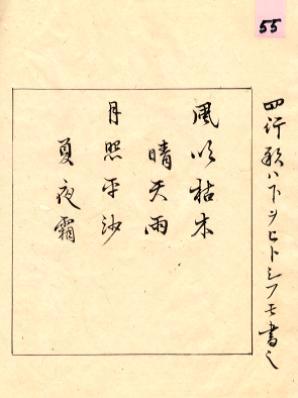 55
四行ハ下ヲヒトシフモ書
風吹枯木
晴天雨
月照平沙
夏夜霜